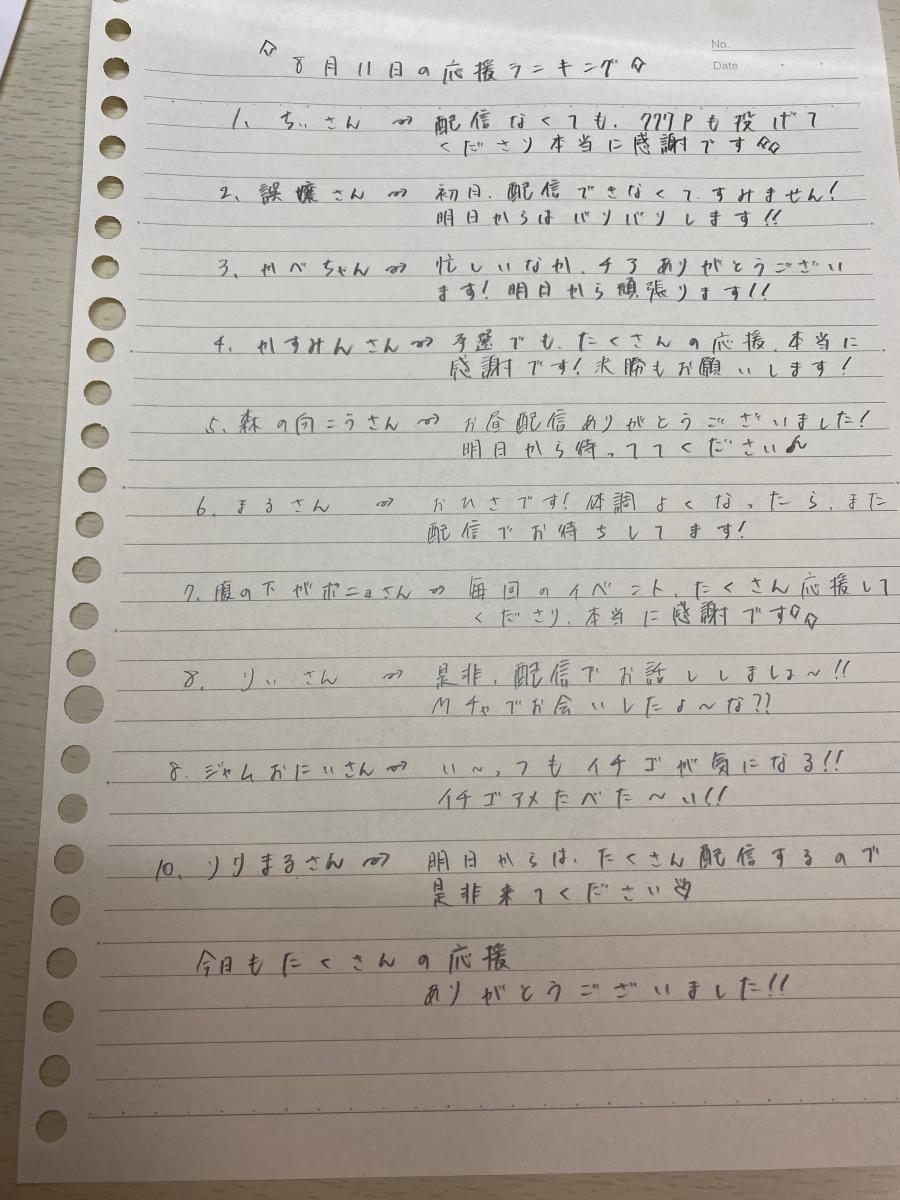 No.
Date
8月11日の応援ランキング
1、ちぃさん ⇒ 配信なくても、777Pも投げて
くださり本当に感謝です
2、誤嬢さん ⇒ 初日、配信できなくて、すみません!
明日からはバリバリします!!
3、かべちゃん ⇒ 忙しいなか、チアありがとうござい
ます!明日から頑張ります!!
4、かすみんさん ⇒ 予選でも、たくさんの応援、本当に
感謝です!決勝もお願いします!
5、森の向こうさん ⇒ お昼配信ありがとうございました!
明日から待っててください♪
6、まるさん ⇒ おひさです!体調よくなったら、また
配信でお待ちしてます!
7、腹の下がポニョさん ⇒ 毎回のイベント、たくさん応援して
くださり、本当に感謝です
8、りぃさん ⇒ 是非、配信でお話ししましょ〜!!
Mチャでお会いしたよ〜な??
8、ジャムおにいさん ⇒ い〜っつもイチゴが気になる!!
イチゴアメたべた〜い!!
10、りりまるさん ⇒ 明日からは、たくさん配信するので
是非来てください♡
今日もたくさんの応援
ありがとうございました!!